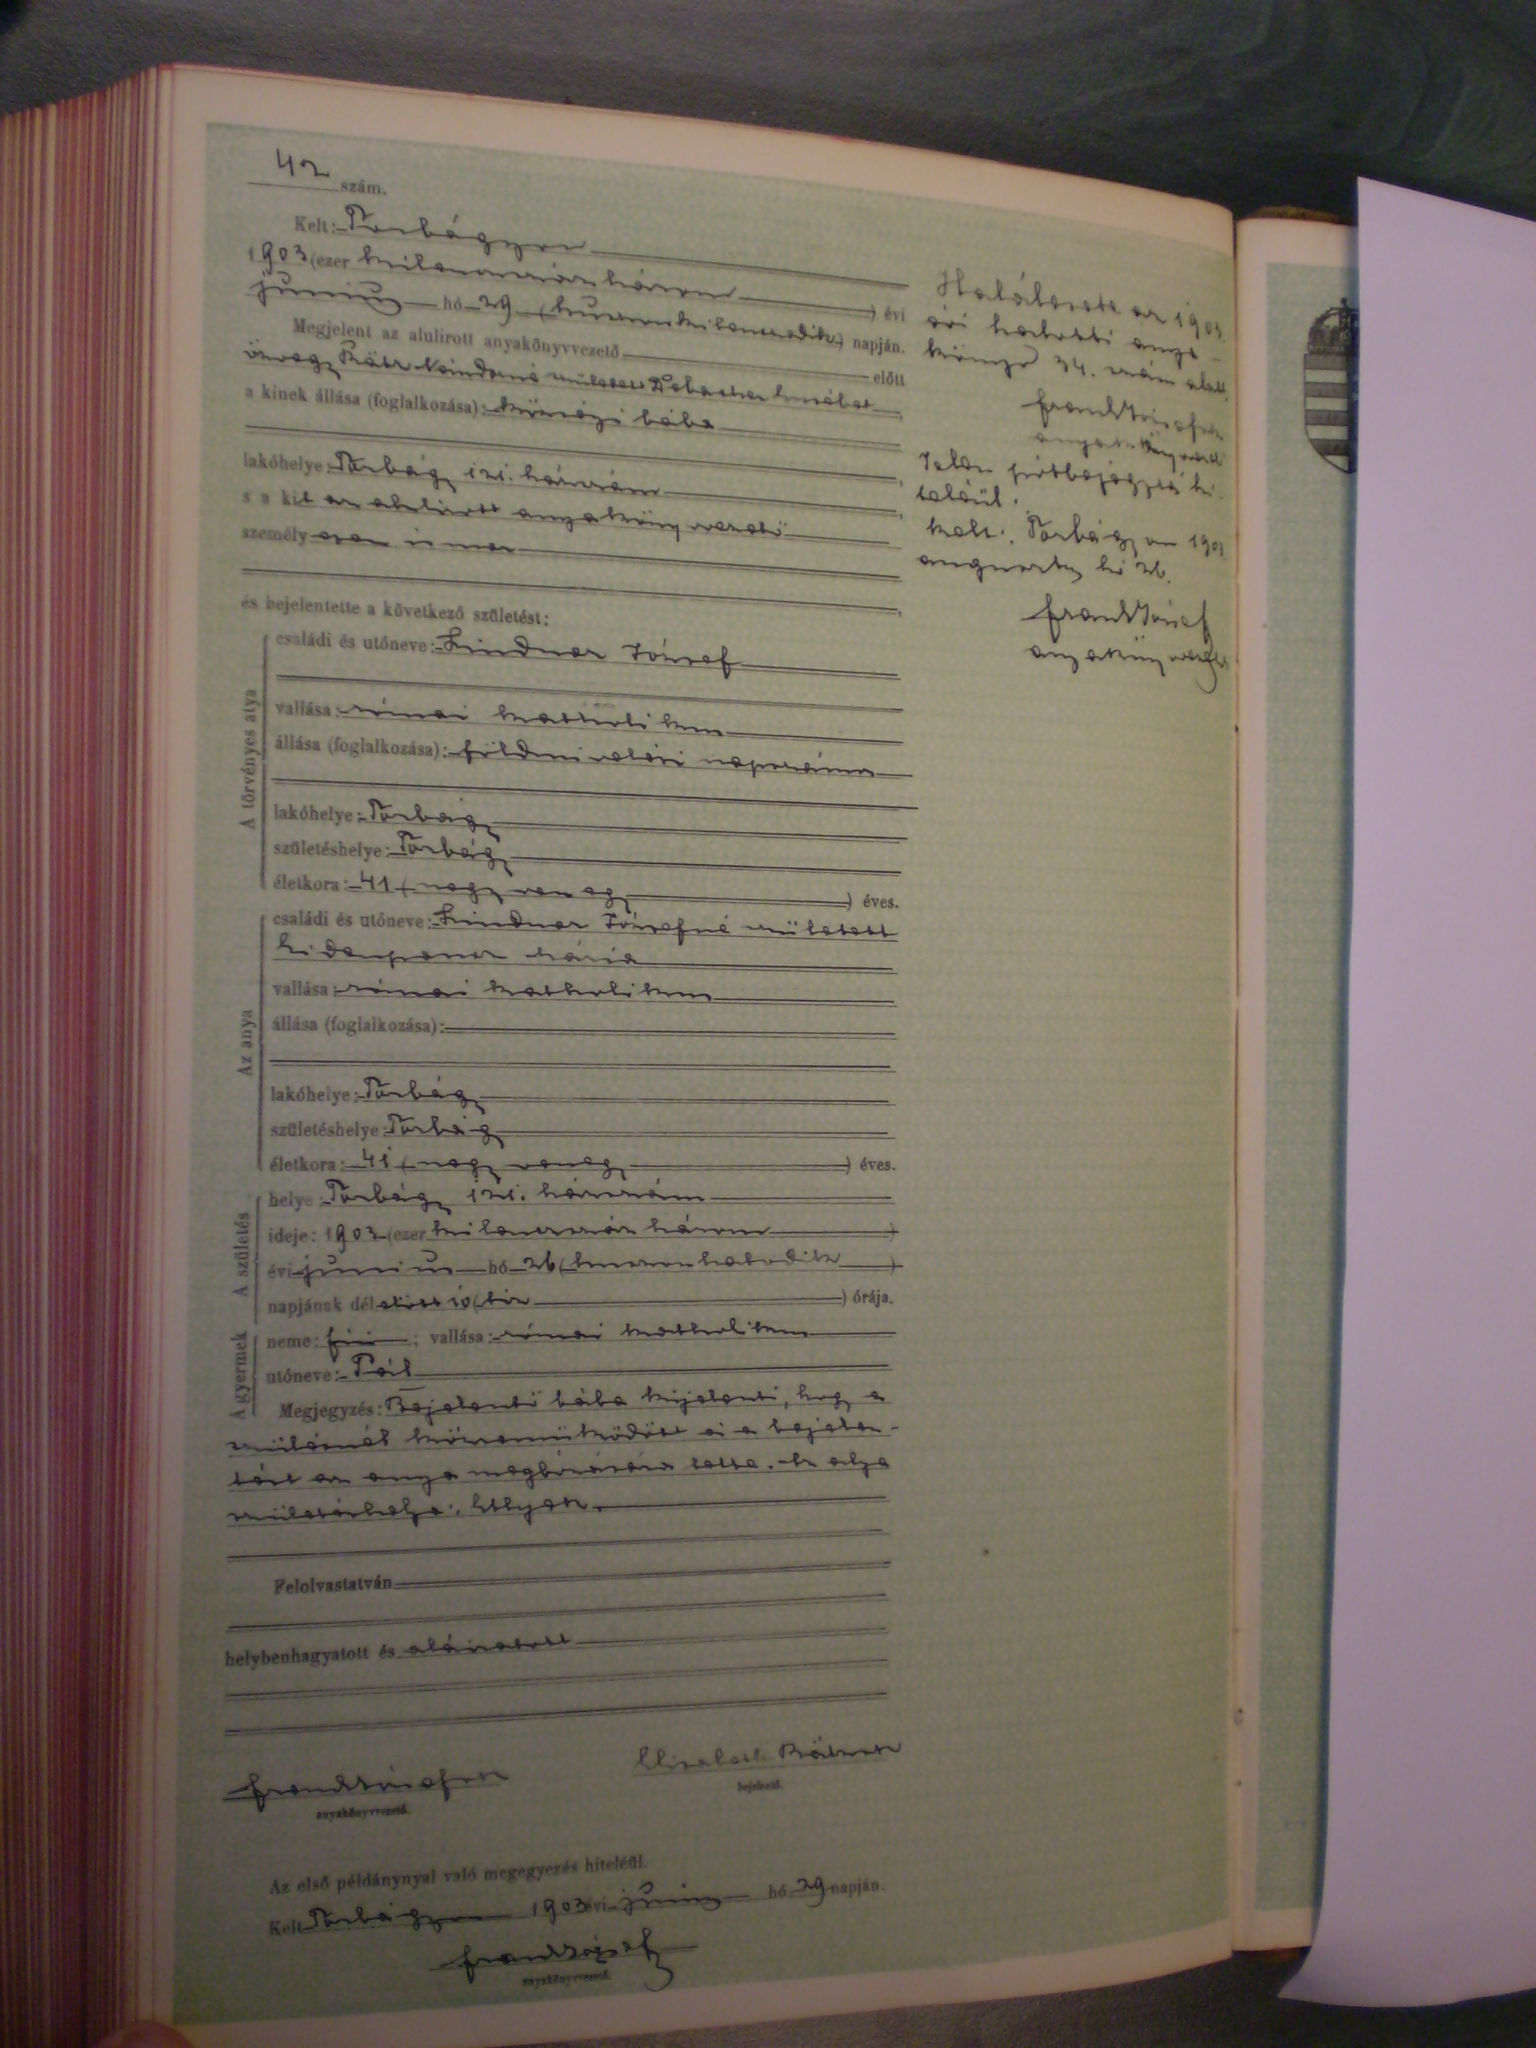 42 szám.
Kelt: Torbágyon
1903 (ezer kilenczszáz három) évi
junius hó 29 (huszonkilenczedik) napján.
Megjelent az alulirott anyakönyvvezető előtt
özvegy született
a kinek állása (foglalkozása): községi bába
lakóhelye: Torbágy 121. házszám
s a kit az alulirott anyakönyvvezető
személy esen ismer
és bejelentette a következő születést:
A törvényes atya
családi és utóneve: Lindner József
vallása: római katholikus
állása (foglalkozása): földmivelési napszámos
lakóhelye: Torbágy
születéshelye: Torbágy
életkora: 41 (negyvenegy) éves.
Az anya
családi és utóneve: Lindner Józsefné született
Mária
vallása: római katholikus
állása (foglalkozása):
lakóhelye: Torbágy
születéshelye: Torbágy
életkora: 41 (negyvenegy) éves.
A születés
helye: Torbágy 121. házszám
ideje: 1903 (ezer kilenczszáz három)
évi junius hó 26 (huszonhatodik)
napjának délelőtt 10 (tiz) órája.
A gyermek
neme: fiú; vallása: római katholikus
utóneve: Pál
Megjegyzés: Bejelentő bába kijelenti, hogy a
szülésnél közreműködött és a bejelen-
tést az anya megbizására tette.
születéshelye:
Felolvastatván
helybenhagyatott és aláiratott
anyakönyvvezető.
bejelentő.
Az első példánynyal való megegyezés hiteléül.
Kelt Torbágyon 1903 évi junius hó 29 napján.
Frank József
anyakönyvvezető.
Halálesete az 1903.
évi halotti anya-
könyv 34. szám alatt.
anyakönyvvezető
Jelen pótbejegyzés hi-
teléül.
Kelt. Torbágyon 1903.
augusztus hó 26.
Frank József
anyakönyvvezető